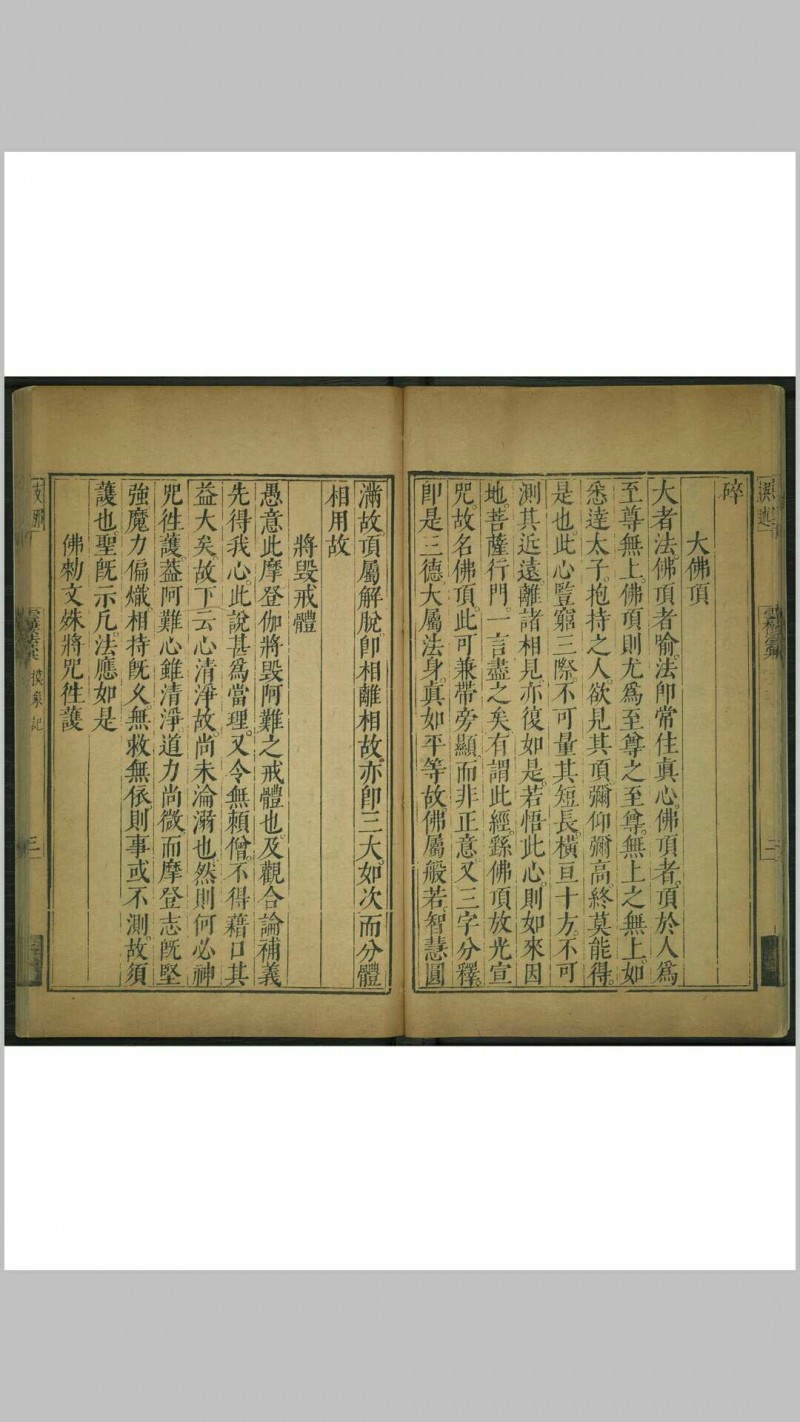 碎
大佛頂
大者法佛頂者喻法卽常住真心佛頂者頂於人爲
至尊無上佛頂則尤爲至尊之至尊無上之無上如
悉達太子抱持之人欲見其頂彌仰彌高終莫能得
是也此心豎窮三際不可量其短長橫亘十方不可
測其近遠離諸相見亦復如是若悟此心則如來因
地菩薩行門一言盡之矣有謂此經繇佛頂放光宣
咒故名佛頂此可兼帶旁顯而非正意又三字分釋
卽是三德大屬法身真如平等故佛屬般若智慧圓
滿故頂屬解脫卽相離相故亦卽三大如次而分體
相用故
將毀戒體
愚意此摩登伽將毀阿難之戒體也及觀合論補義
先得我心此說甚爲當理又令無賴僧不得藉口其
益大矣故下云心清淨故尚未淪溺也然則何必神
咒徃護葢阿難心雖清淨道力尚微而摩登志旣堅
強魔力偏熾相持旣久無救無依則事或不測故須
護也聖旣示凡法應如是
佛勑文殊將咒徃護
摸象記
三
二